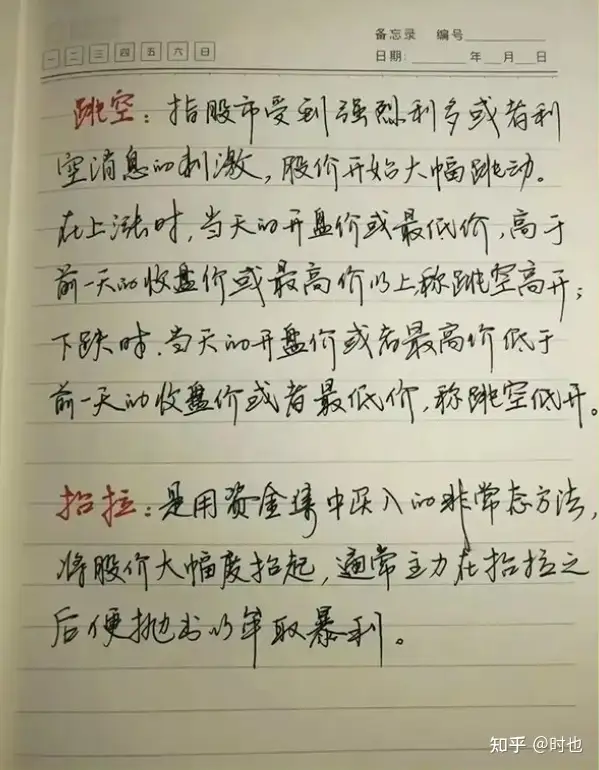 备忘录 编号
一 二 三 四 五 六 日 日期: 年 月 日
跳空：指股市受到强烈利多或者利
空消息的刺激，股价开始大幅跳动。
在上涨时，当天的开盘价或最低价，高于
前一天的收盘价或最高价以上，称跳空高开；
下跌时，当天的开盘价或者最高价低于
前一天的收盘价或者最低价，称跳空低开。
抬拉：是用资金集中买入的非常态方法，
将股价大幅度抬起，通常主力在抬拉之
后便抛出以牟取暴利。
知乎 @时也